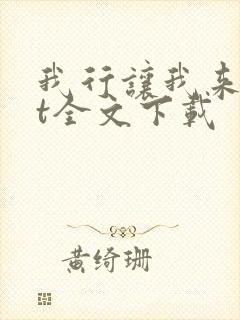 我行讓我来
t全文下載
黄绮珊